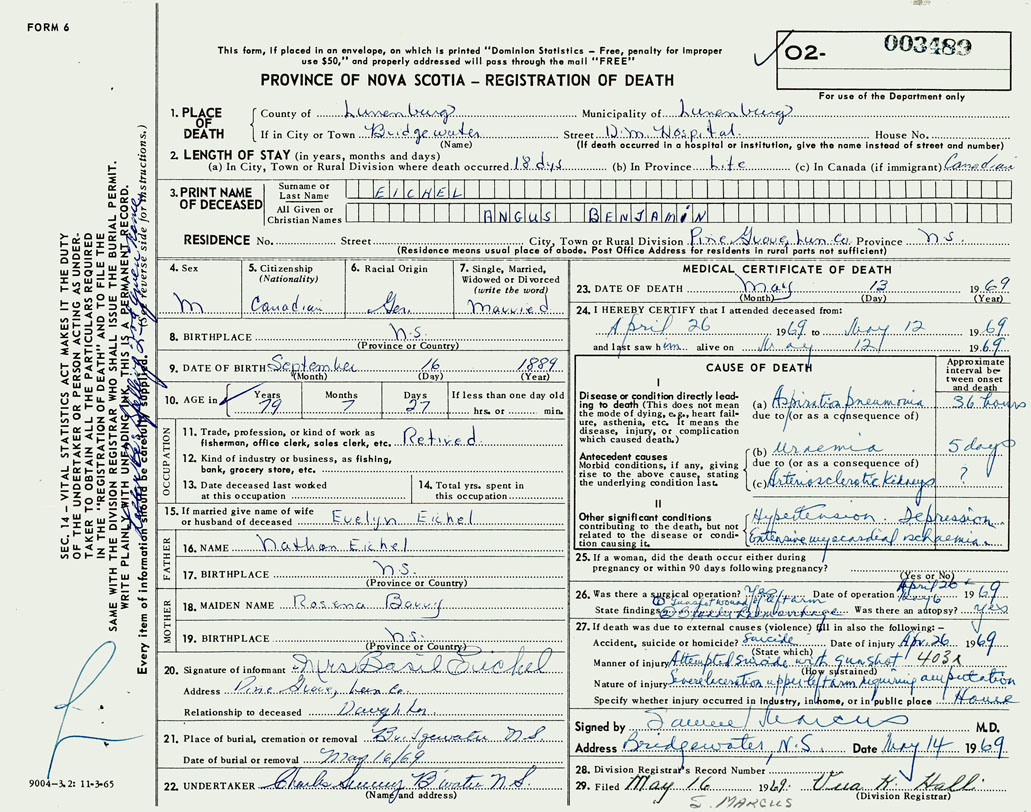 FORM 6
This form, if placed in an envelope, on which is printed "Dominion Statistics – Free, penalty for improper
use $50," and properly addressed will pass through the mail "FREE"
PROVINCE OF NOVA SCOTIA – REGISTRATION OF DEATH
02- 003489
For use of the Department only
1. PLACE OF DEATH County of Lunenburg Municipality of Lunenburg
If in City or Town Bridgewater Street D.M. Hospital House No.
(Name) (If death occurred in a hospital or institution, give the name instead of street and number)
2. LENGTH OF STAY (in years, months and days)
(a) In City, Town or Rural Division where death occurred 18 dys (b) In Province Life (c) In Canada (if immigrant) Canadian
3. PRINT NAME OF DECEASED Surname or Last Name EICHEL
All Given or Christian Names ANGUS BENJAMIN
RESIDENCE No. Street City, Town or Rural Division Pine Grove, Lun Co. Province N.S.
(Residence means usual place of abode. Post Office Address for residents in rural parts not sufficient)
4. Sex M
5. Citizenship (Nationality) Canadian
6. Racial Origin Ger.
7. Single, Married, Widowed or Divorced (write the word) Married
8. BIRTHPLACE N.S.
(Province or Country)
9. DATE OF BIRTH September 16 1889
(Month) (Day) (Year)
10. AGE in Years 79 Months 7 Days 27 If less than one day old hrs. or min.
OCCUPATION
11. Trade, profession, or kind of work as fisherman, office clerk, sales clerk, etc. Retired
12. Kind of industry or business, as fishing, bank, grocery store, etc.
13. Date deceased last worked at this occupation
14. Total yrs. spent in this occupation
15. If married give name of wife or husband of deceased Evelyn Eichel
FATHER
16. NAME Nathan Eichel
17. BIRTHPLACE N.S.
(Province or Country)
MOTHER
18. MAIDEN NAME Rosena
19. BIRTHPLACE N.S.
(Province or Country)
20. Signature of informant Mrs Basil Eichel
Address Pine Grove, Lun Co.
Relationship to deceased Daughter
21. Place of burial, cremation or removal Bridgewater N.S.
Date of burial or removal May 16/69
22. UNDERTAKER Charles B'water N.S.
(Name and address)
MEDICAL CERTIFICATE OF DEATH
23. DATE OF DEATH May 13 1969
(Month) (Day) (Year)
24. I HEREBY CERTIFY that I attended deceased from:
April 26 1969 to May 12 1969
and last saw him alive on May 12 1969
CAUSE OF DEATH
Approximate interval between onset and death
I
Disease or condition directly leading to death (This does not mean the mode of dying, e.g., heart failure, asthenia, etc. It means the disease, injury, or complication which caused death.)
(a) Aspiration pneumonia 36 hours
due to (or as a consequence of)
Antecedent causes
Morbid conditions, if any, giving rise to the above cause, stating the underlying condition last.
(b) Uraemia 5 days
due to (or as a consequence of)
(c) Arteriosclerotic kidneys ?
II
Other significant conditions contributing to the death, but not related to the disease or condition causing it.
Hypertension Depression
Extensive myocardial ischaemia
25. If a woman, did the death occur either during pregnancy or within 90 days following pregnancy?
(Yes or No)
26. Was there a surgical operation? Yes Date of operation April 26 + May 6 1969
State findings Was there an autopsy? yes
27. If death was due to external causes (violence) fill in also the following:–
Accident, suicide or homicide? Suicide Date of injury Apr. 26 1969
(State which)
Manner of injury Attempted suicide with gunshot 403x
(How sustained)
Nature of injury Severe laceration upper left arm requiring amputation
Specify whether injury occurred in industry, in home, or in public place House
Signed by Samuel Marcus M.D.
Address Bridgewater, N.S. Date May 14 1969
28. Division Registrar's Record Number
29. Filed May 16 1969. K. Hall
(Division Registrar)
S. MARCUS
SEC. 14 – VITAL STATISTICS ACT MAKES IT THE DUTY
OF THE UNDERTAKER OR PERSON ACTING AS UNDER-
TAKER TO OBTAIN ALL THE PARTICULARS REQUIRED
IN THE "REGISTRATION OF DEATH" AND TO FILE THE
SAME WITH THE DIVISION REGISTRAR WHO SHALL ISSUE THE BURIAL PERMIT.
WRITE PLAINLY WITH UNFADING INK. THIS IS A PERMANENT RECORD.
Every item of information should be carefully supplied. (See reverse side for instructions.)
9004–3.2: 11-3-65